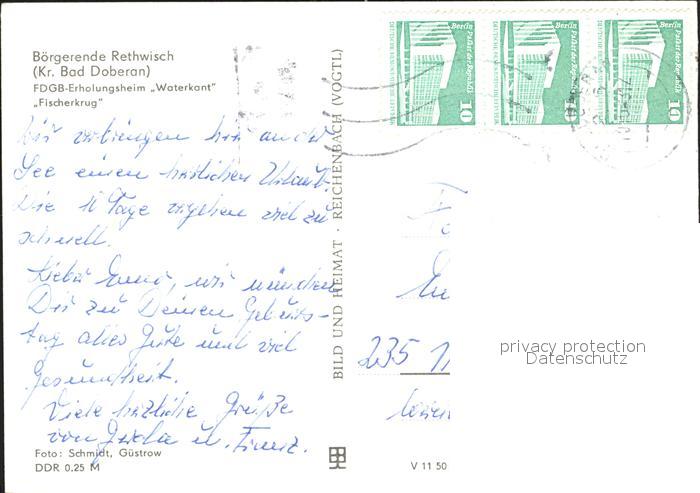 Börgerende Rethwisch
(Kr. Bad Doberan)
FDGB-Erholungsheim „Waterkant"
„Fischerkrug"
Wir verbringen hier an der
See einen herrlichen Urlaub.
Die 11 Tage vergehen viel zu
schnell.
Lieber wir wünschen
Dir zu Deinem Geburts-
tag alles Gute und viel
Gesundheit.
Viele herzliche Grüße
von Gerda u. Franz.
Foto: Schmidt, Güstrow
DDR 0,25 M
BILD UND HEIMAT · REICHENBACH (VOGTL)
V 11 50
Berlin Palast der Republik
10
Berlin Palast der Republik
Berlin Palast der Republik
10
235
privacy protection
Datenschutz